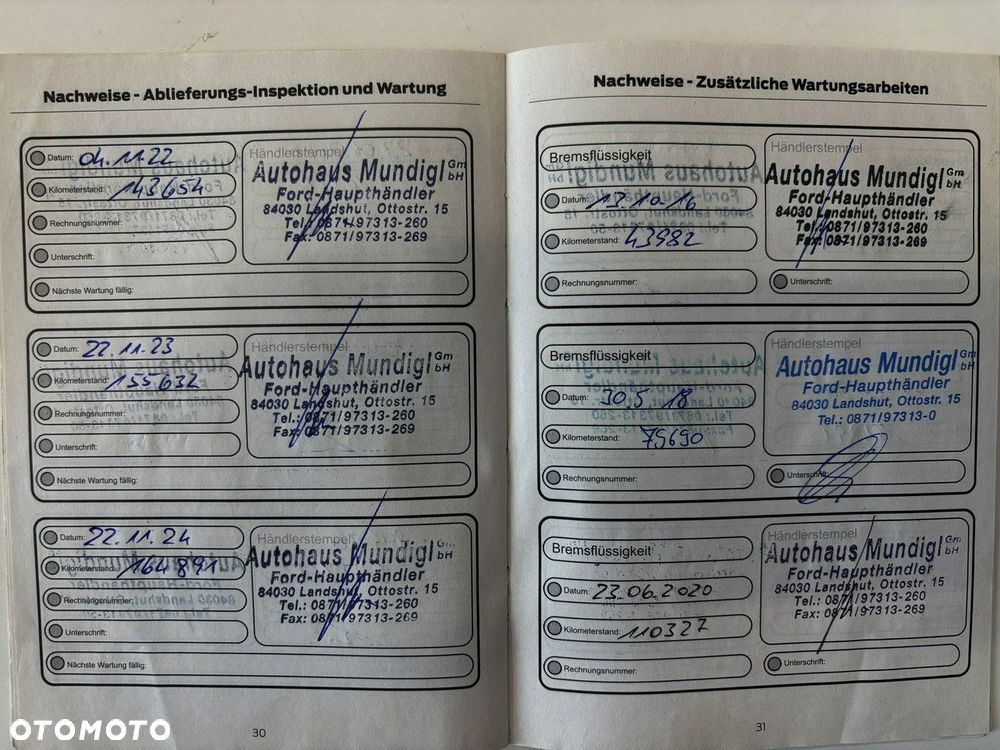 Nachweise - Ablieferungs-Inspektion und Wartung
Datum: 04.11.22
Kilometerstand: 143654
Rechnungsnummer:
Unterschrift:
Nächste Wartung fällig:
Händlerstempel
Autohaus Mundigl GmbH
Ford-Haupthändler
84030 Landshut, Ottostr. 15
Tel.: 0871/97313-260
Fax: 0871/97313-269
Datum: 22.11.23
Kilometerstand: 155632
Rechnungsnummer:
Unterschrift:
Nächste Wartung fällig:
Händlerstempel
Autohaus Mundigl GmbH
Ford-Haupthändler
84030 Landshut, Ottostr. 15
Tel.: 0871/97313-260
Fax: 0871/97313-269
Datum: 22.11.24
Kilometerstand: 164891
Rechnungsnummer:
Unterschrift:
Nächste Wartung fällig:
Händlerstempel
Autohaus Mundigl GmbH
Ford-Haupthändler
84030 Landshut, Ottostr. 15
Tel.: 0871/97313-260
Fax: 0871/97313-269
30
Nachweise - Zusätzliche Wartungsarbeiten
Bremsflüssigkeit
Datum: 17.10.16
Kilometerstand: 43982
Rechnungsnummer:
Händlerstempel
Autohaus Mundigl GmbH
Ford-Haupthändler
84030 Landshut, Ottostr. 15
Tel.: 0871/97313-260
Fax: 0871/97313-269
Unterschrift:
Bremsflüssigkeit
Datum: 30.5.18
Kilometerstand: 79690
Rechnungsnummer:
Händlerstempel
Autohaus Mundigl GmbH
Ford-Haupthändler
84030 Landshut, Ottostr. 15
Tel.: 0871/97313-0
Unterschrift:
Bremsflüssigkeit
Datum: 23.06.2020
Kilometerstand: 110327
Rechnungsnummer:
Händlerstempel
Autohaus Mundigl GmbH
Ford-Haupthändler
84030 Landshut, Ottostr. 15
Tel.: 0871/97313-260
Fax: 0871/97313-269
Unterschrift:
31
OTOMOTO